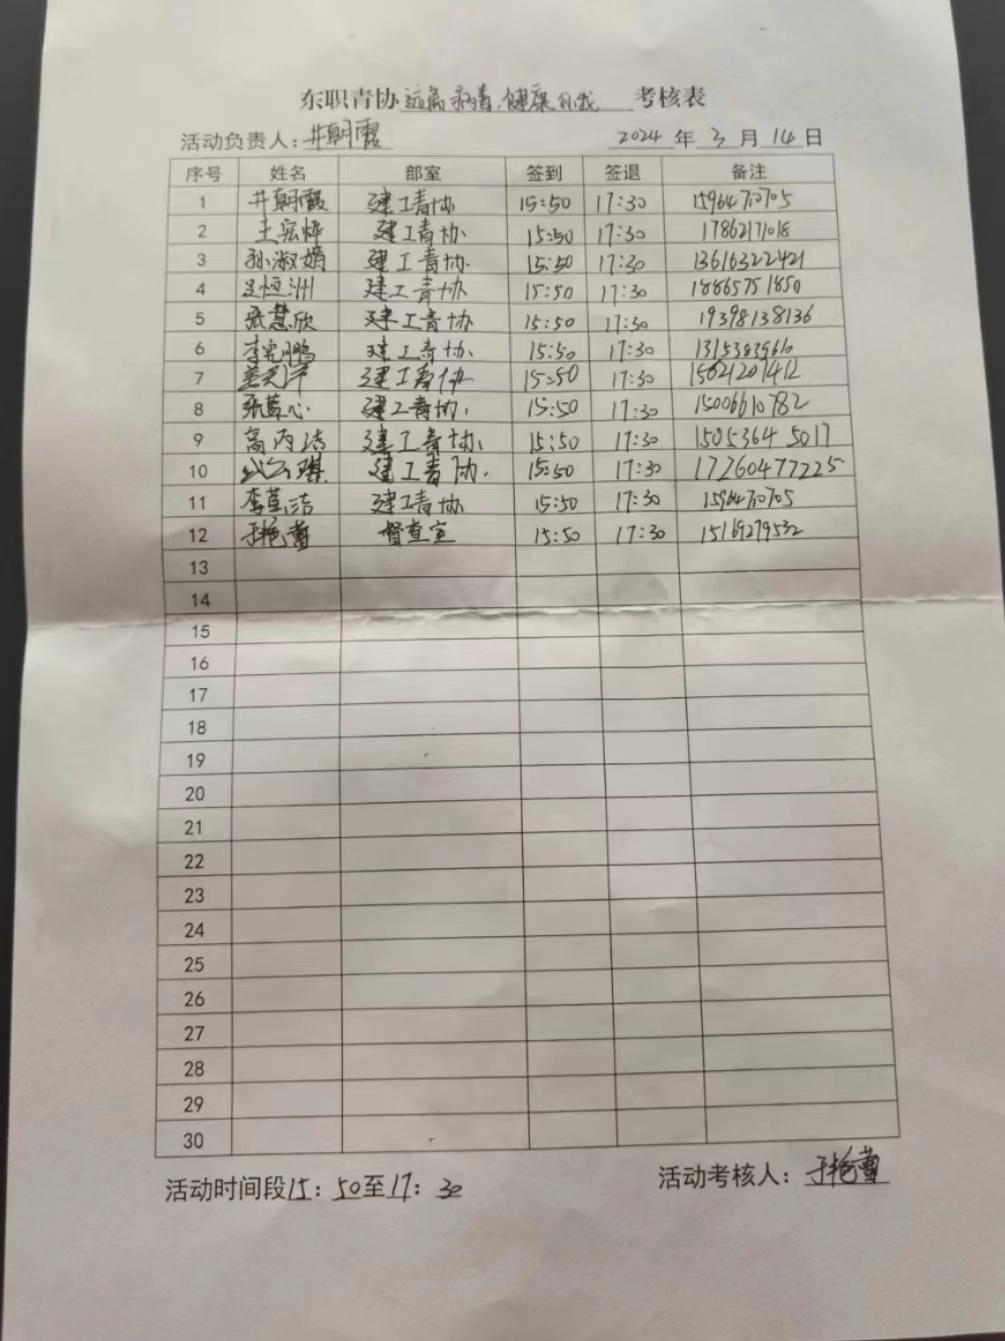 东职青协远离病毒.健康自我 考核表
活动负责人：井朝霞 2024 年 3 月 14 日
序号 姓名 部室 签到 签退 备注
1 井朝霞 建工青协 15:50 17:30 15964710705
2 王宏烨 建工青协 15:50 17:30 17862171018
3 孙淑娟 建工青协 15:50 17:30 13616322421
4 恒洲 建工青协 15:50 17:30 18865751850
5 张慧欣 建工青协 15:50 17:30 19398138136
6 李 鹏 建工青协 15:50 17:30
7 建工青协 15:50 17:30 15621207412
8 张 心 建工青协. 15:50 17:30 15006610782
9 高丙洁 建工青协. 15:50 17:30 15053645017
10 琪 建工青协. 15:50 17:30 17260477225
11 李 洁 建工青协 15:50 17:30 15964710705
12 于艳蕾 督查室 15:50 17:30 15169279532
13
14
15
16
17
18
19
20
21
22
23
24
25
26
27
28
29
30
活动时间段15：50至17：30 活动考核人：于艳蕾